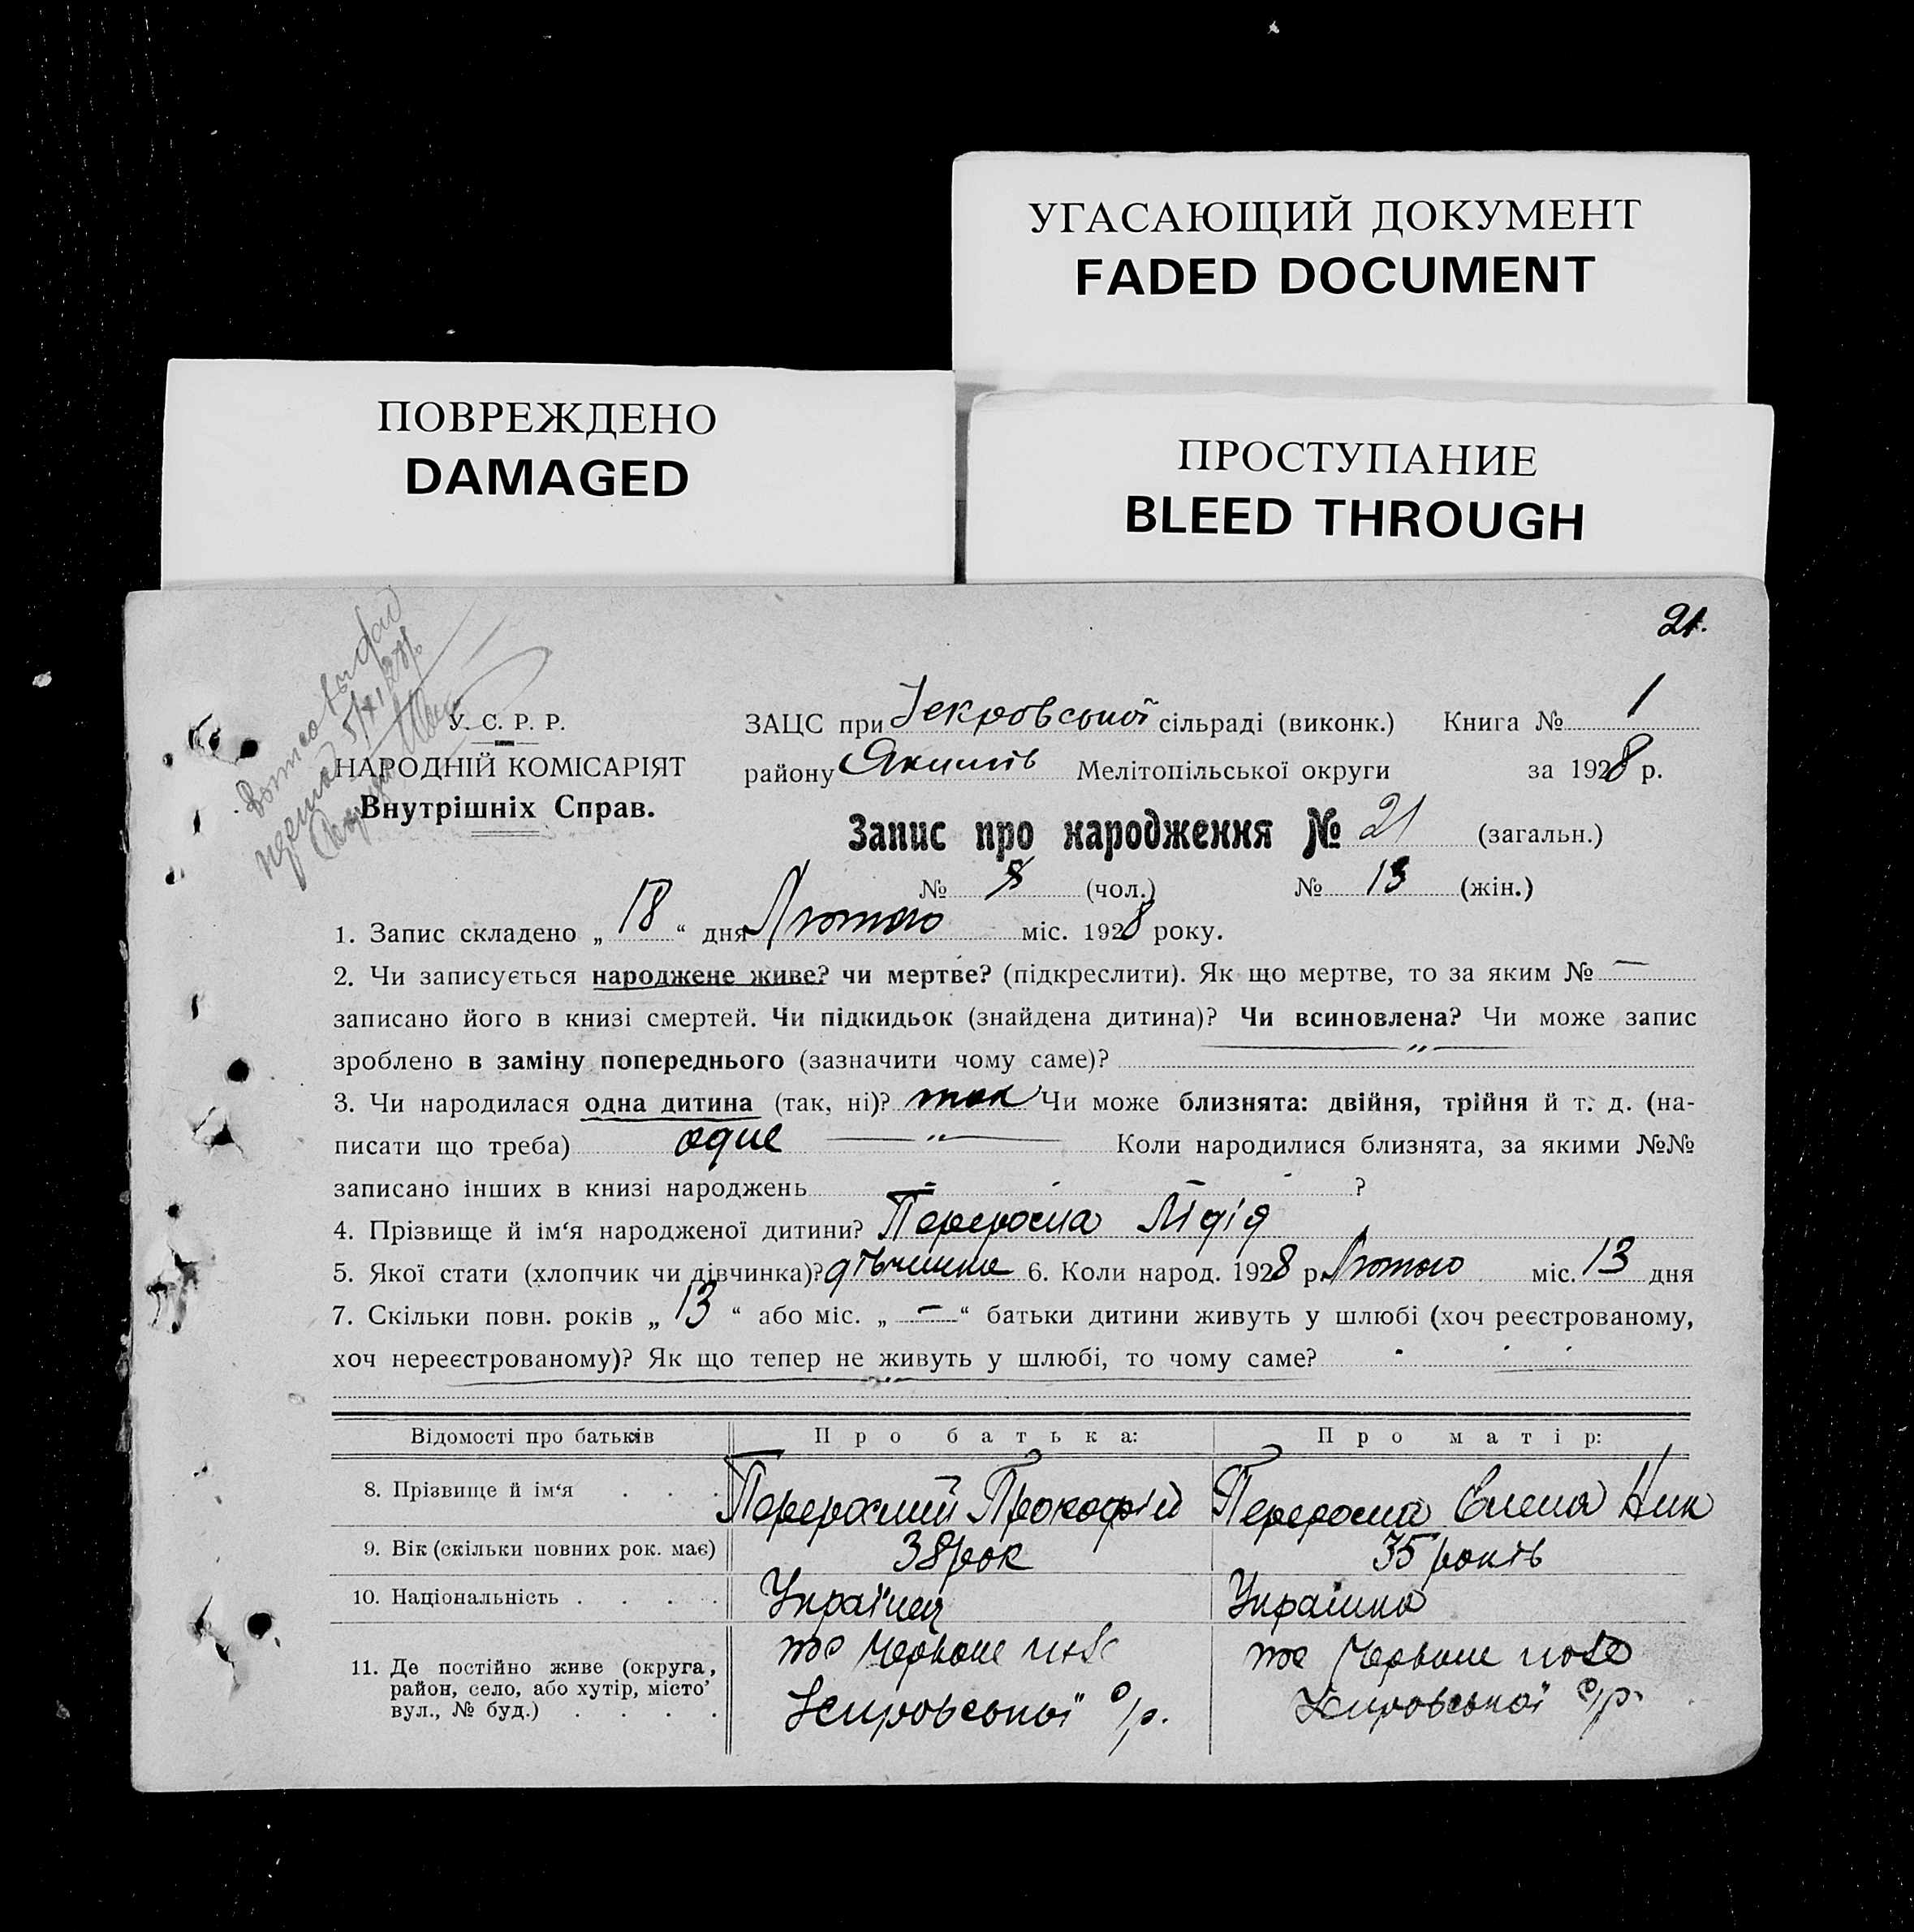 УГАСАЮЩИЙ ДОКУМЕНТ
FADED DOCUMENT
ПОВРЕЖДЕНО
DAMAGED
ПРОСТУПАНИЕ
BLEED THROUGH
21.
У. С. Р. Р.
НАРОДНІЙ КОМІСАРІЯТ
Внутрішніх Справ.
ЗАЦС при сільраді (виконк.) Книга № 1
району Якимів Мелітопільської округи за 1928 р.
Запис про народження № 21 (загальн.)
№ 8 (чол.) № 13 (жін.)
1. Запис складено „ 18 “ дня Лютого міс. 1928 року.
2. Чи записується народжене живе? чи мертве? (підкреслити). Як що мертве, то за яким № —
записано його в книзі смертей. Чи підкидьок (знайдена дитина)? Чи всиновлена? Чи може запис
зроблено в заміну попереднього (зазначити чому саме)? — „ —
3. Чи народилася одна дитина (так, ні)? так Чи може близнята: двійня, трійня й т. д. (на-
писати що треба) одне — „ — Коли народилися близнята, за якими №№
записано інших в книзі народжень ?
4. Прізвище й ім‘я народженої дитини? Переросла Лідія
5. Якої стати (хлопчик чи дівчинка)? дівчинка 6. Коли народ. 1928 р. Лютого міс. 13 дня
7. Скільки повн. років „ 13 “ або міс. „ — “ батьки дитини живуть у шлюбі (хоч реєстрованому,
хоч нереєстрованому)? Як що тепер не живуть у шлюбі, то чому саме?
Відомості про батьків Про батька: Про матір:
8. Прізвище й ім‘я . . . Перерослий Прокофій Переросла Елена Ник
9. Вік (скільки повних рок. має) 38 рок 35 років
10. Національність . . . . Українец Українка
11. Де постійно живе (округа, Червоне поле Червоне поле
район, село, або хутір, місто’
вул., № буд.) . . . . с/р. с/р.